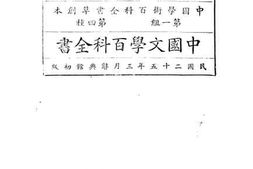 中國學術百科全書草創本
第一組 第四
中國文學百科全書
民國二十五年三月辭典館初版